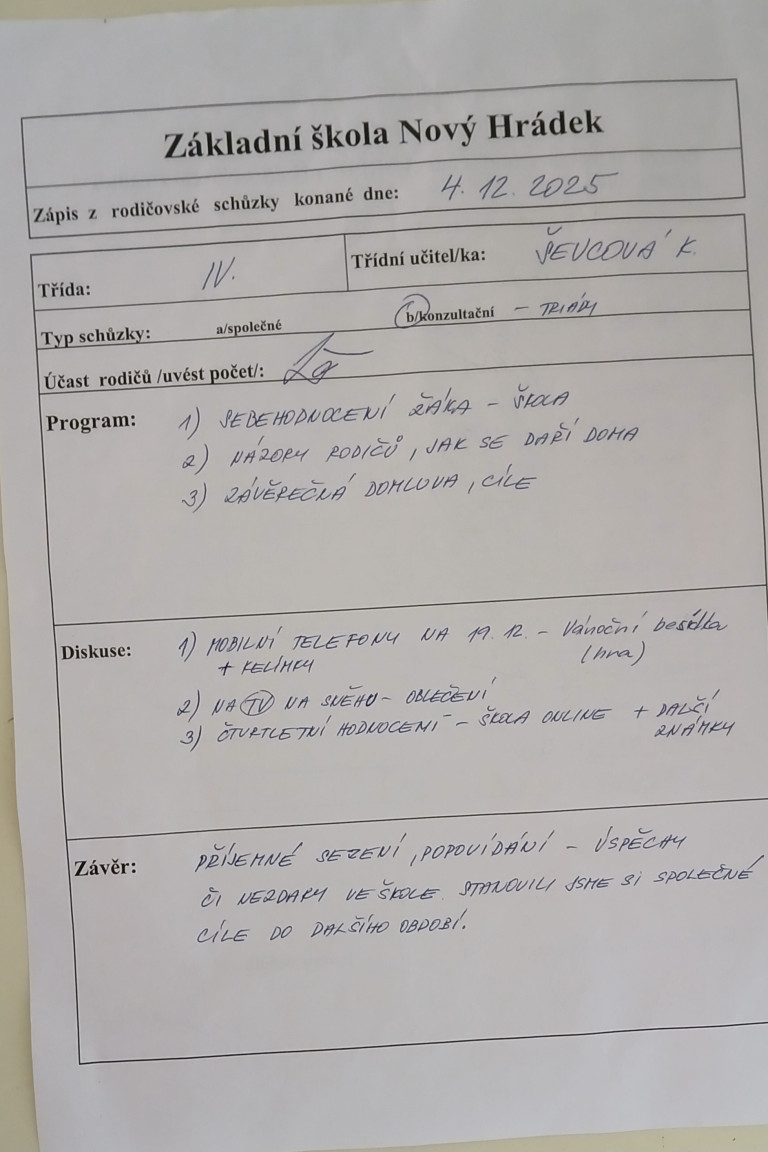 Základní škola Nový Hrádek
Zápis z rodičovské schůzky konané dne: 4. 12. 2025
Třída: IV. Třídní učitel/ka: ŠEVCOVÁ K.
Typ schůzky: a/společné b/konzultační - TRIÁDY
Účast rodičů /uvést počet/:
Program: 1) SEBEHODNOCENÍ ŽÁKA - ŠKOLA
2) NÁZORY RODIČŮ, JAK SE DAŘÍ DOMA
3) ZÁVĚREČNÁ DOMLUVA, CÍLE
Diskuse: 1) MOBILNÍ TELEFONY NA 19. 12. - Vánoční besídka
+ KELÍMKY (hra)
2) NA TV NA SNĚHU - OBLEČENÍ
3) ČTVRTLETNÍ HODNOCENÍ - ŠKOLA ONLINE + DALŠÍ
ZNÁMKY
Závěr: PŘÍJEMNÉ SEZENÍ, POPOVÍDÁNÍ - ÚSPĚCHY
ČI NEZDARY VE ŠKOLE. STANOVILI JSME SI SPOLEČNÉ
CÍLE DO DALŠÍHO OBDOBÍ.